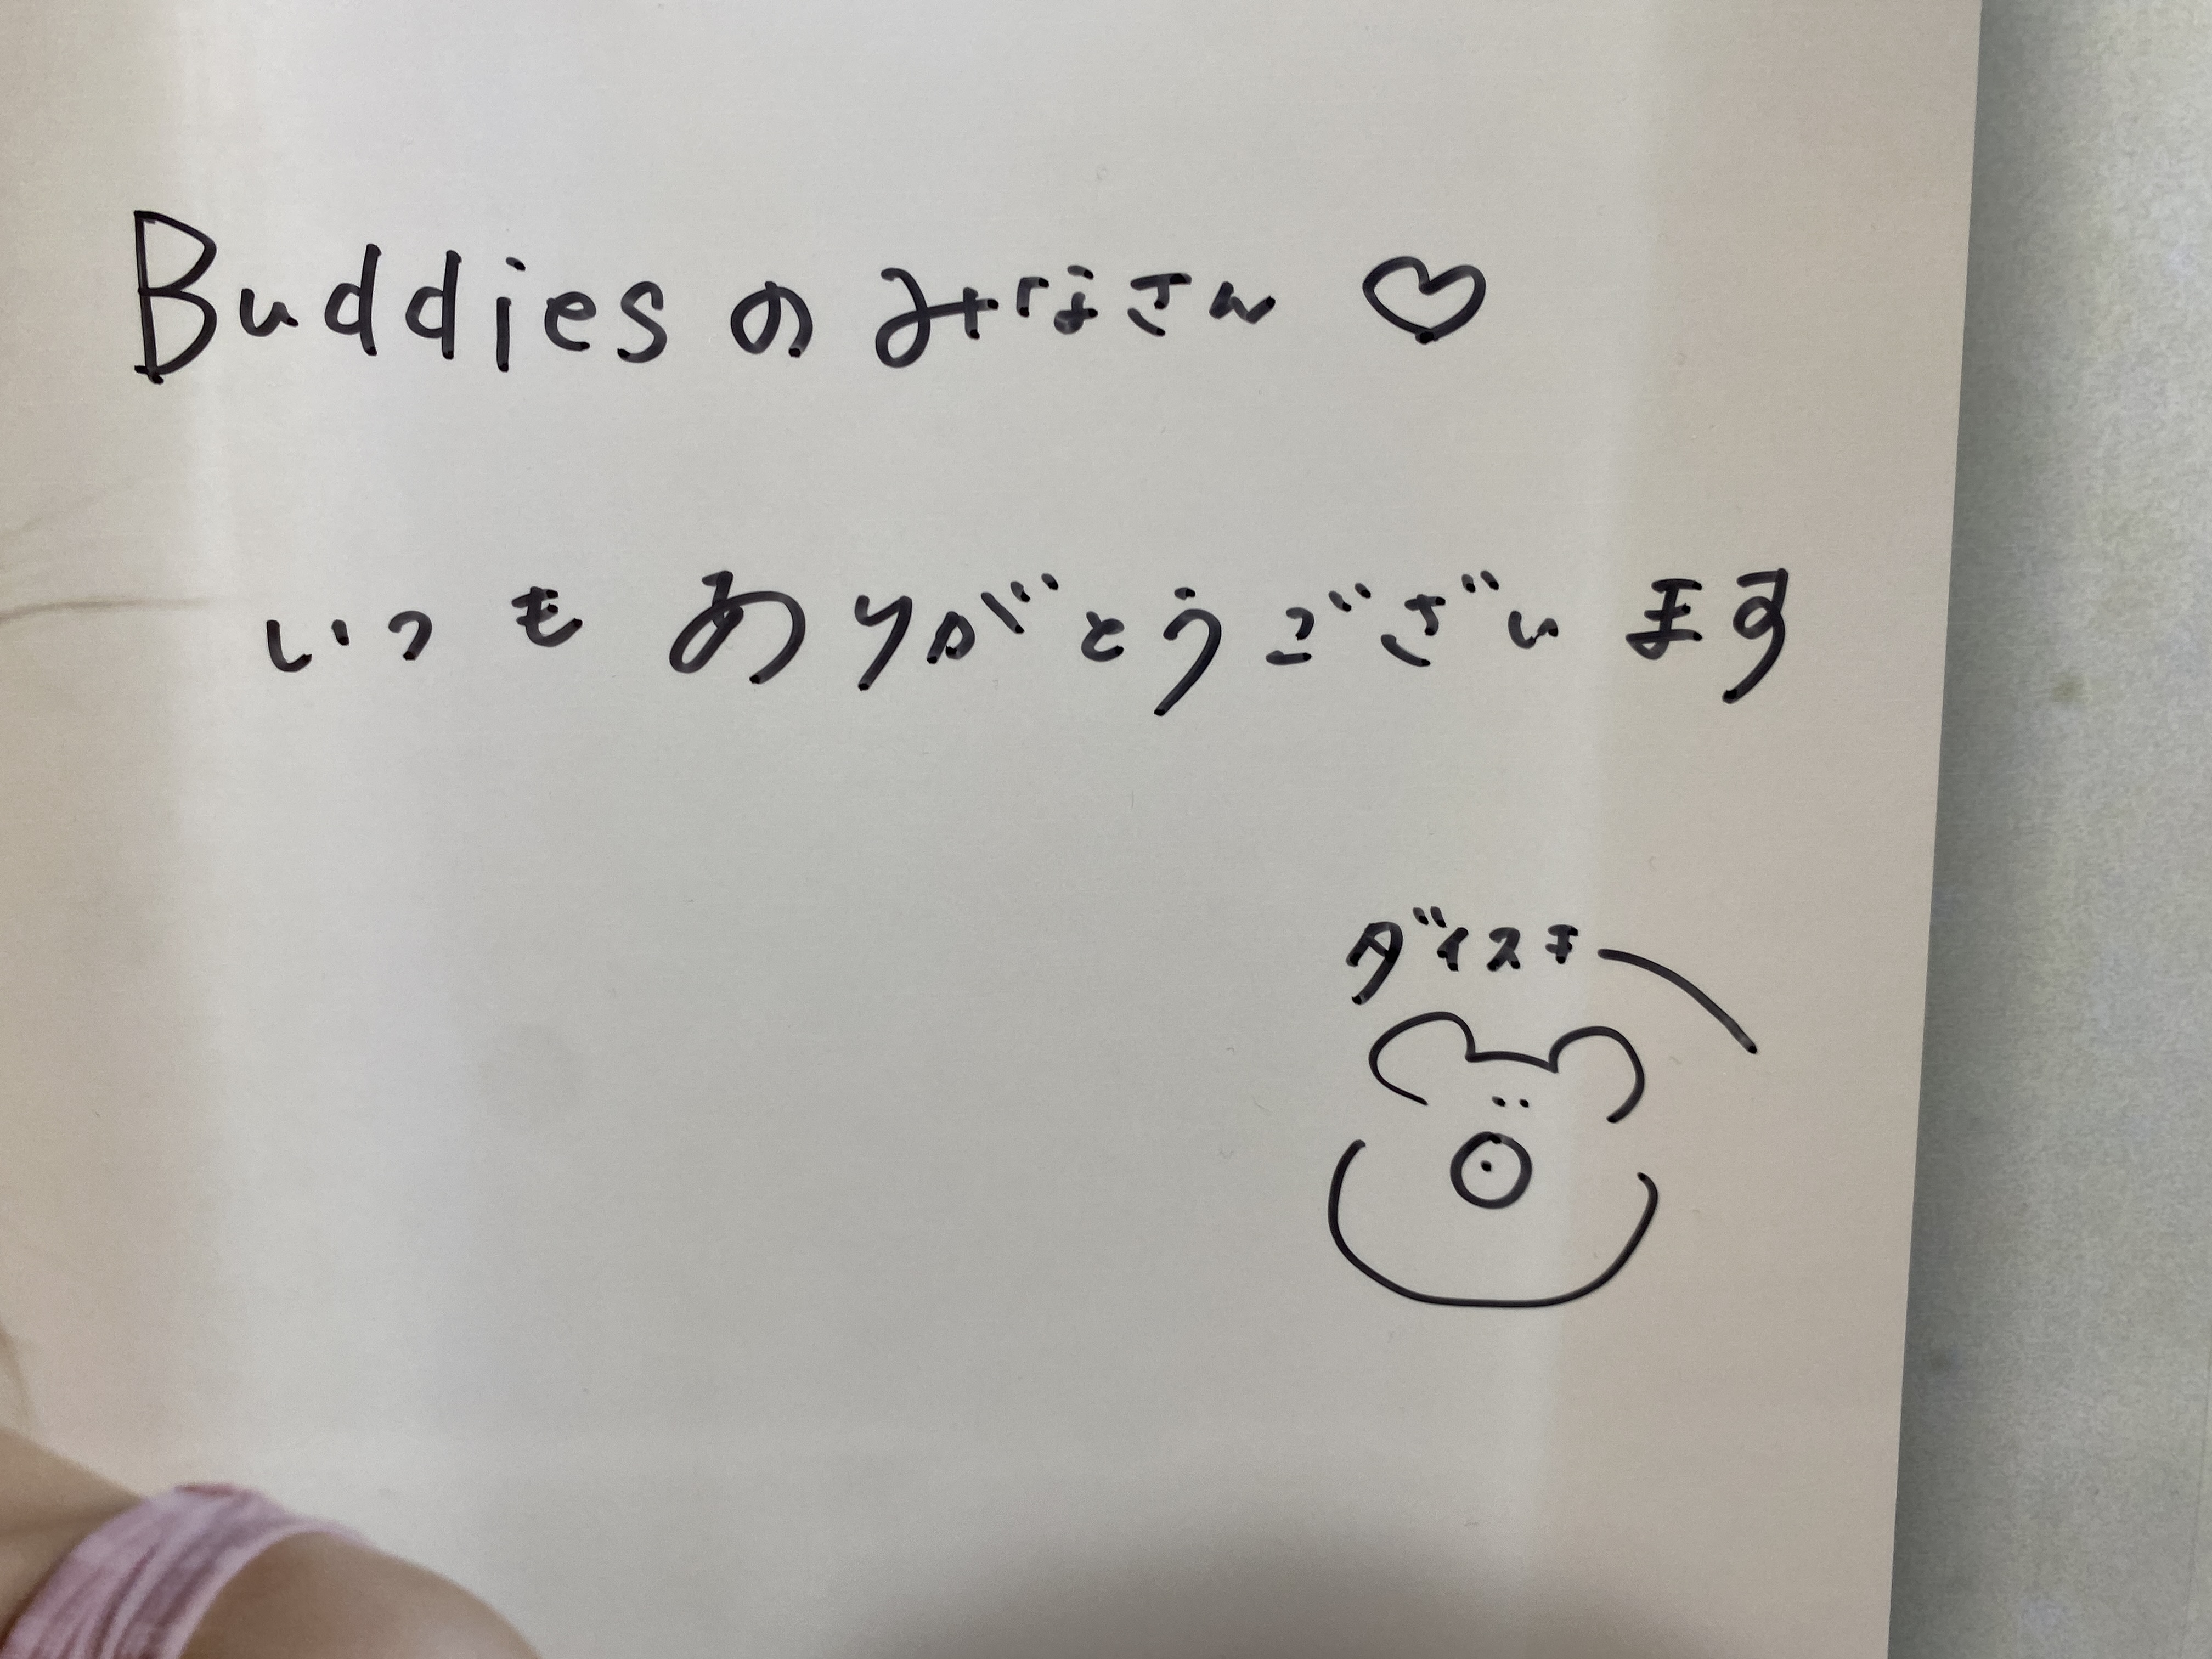 Buddies の みなさん ♡
いつも ありがとうございます
ダイスキー